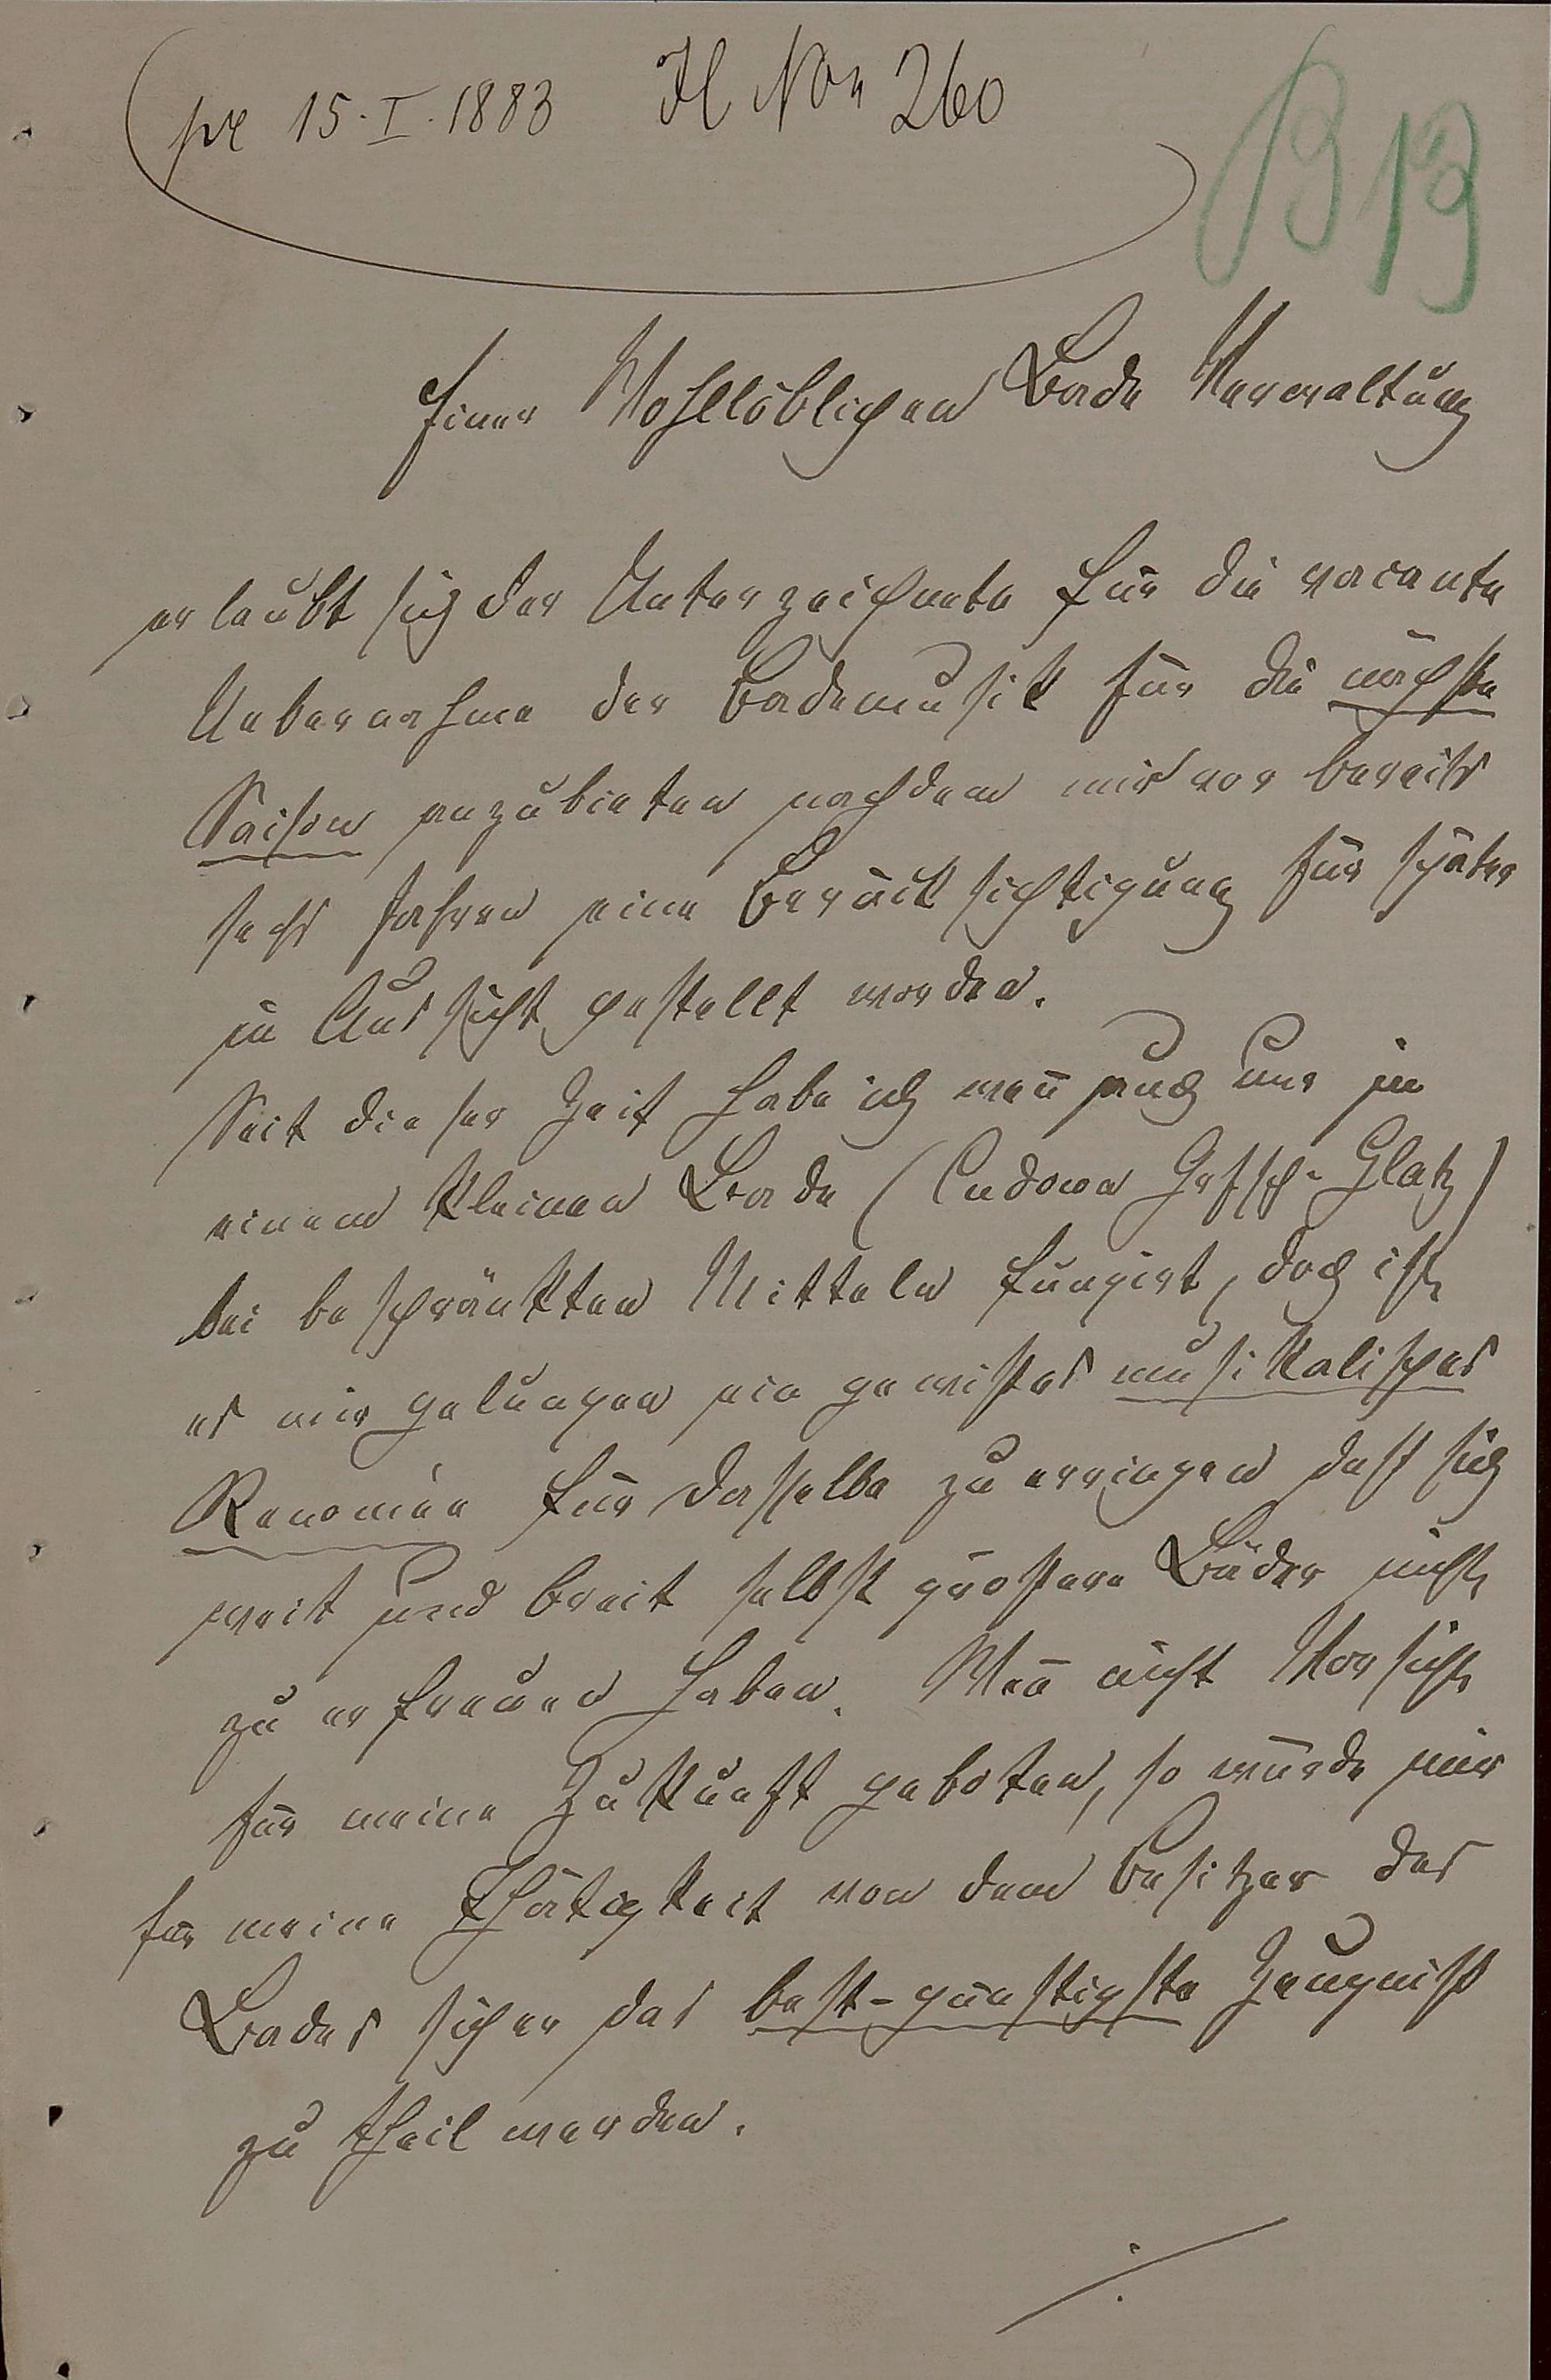 pr 15. I. 1883 H No 260
B 19
Einer Wohllöblichen Bade Verwaltung
erlaubt sich der Unterzeichnete für die vacante
Uebernahme der Bademusik für die nächste
Saison anzubieten nachdem mir vor bereits
sechs Jahren eine Berücksichtigung für später
in Aussicht gestellt worden.
Seit dieser Zeit habe ich wen̄ auch nur in
einem kleinen Bade (Cudowa Grfsch. Glatz)
bei beschränkten Mitteln fungirt, doch ist
es mir gelungen ein gewisses musikalisches
Renomée für dasselbe zu erringen dess sich
weit und breit selbst grössere Bäder nicht
zu erfreuen haben. Wen̄ nicht Vorsicht
für meine Zukunft geboten, so würde mir
für meine Thätigkeit von dem Besitzer des
Bades sicher das best-günstigste Zeugniss
zu theil werden.
./.